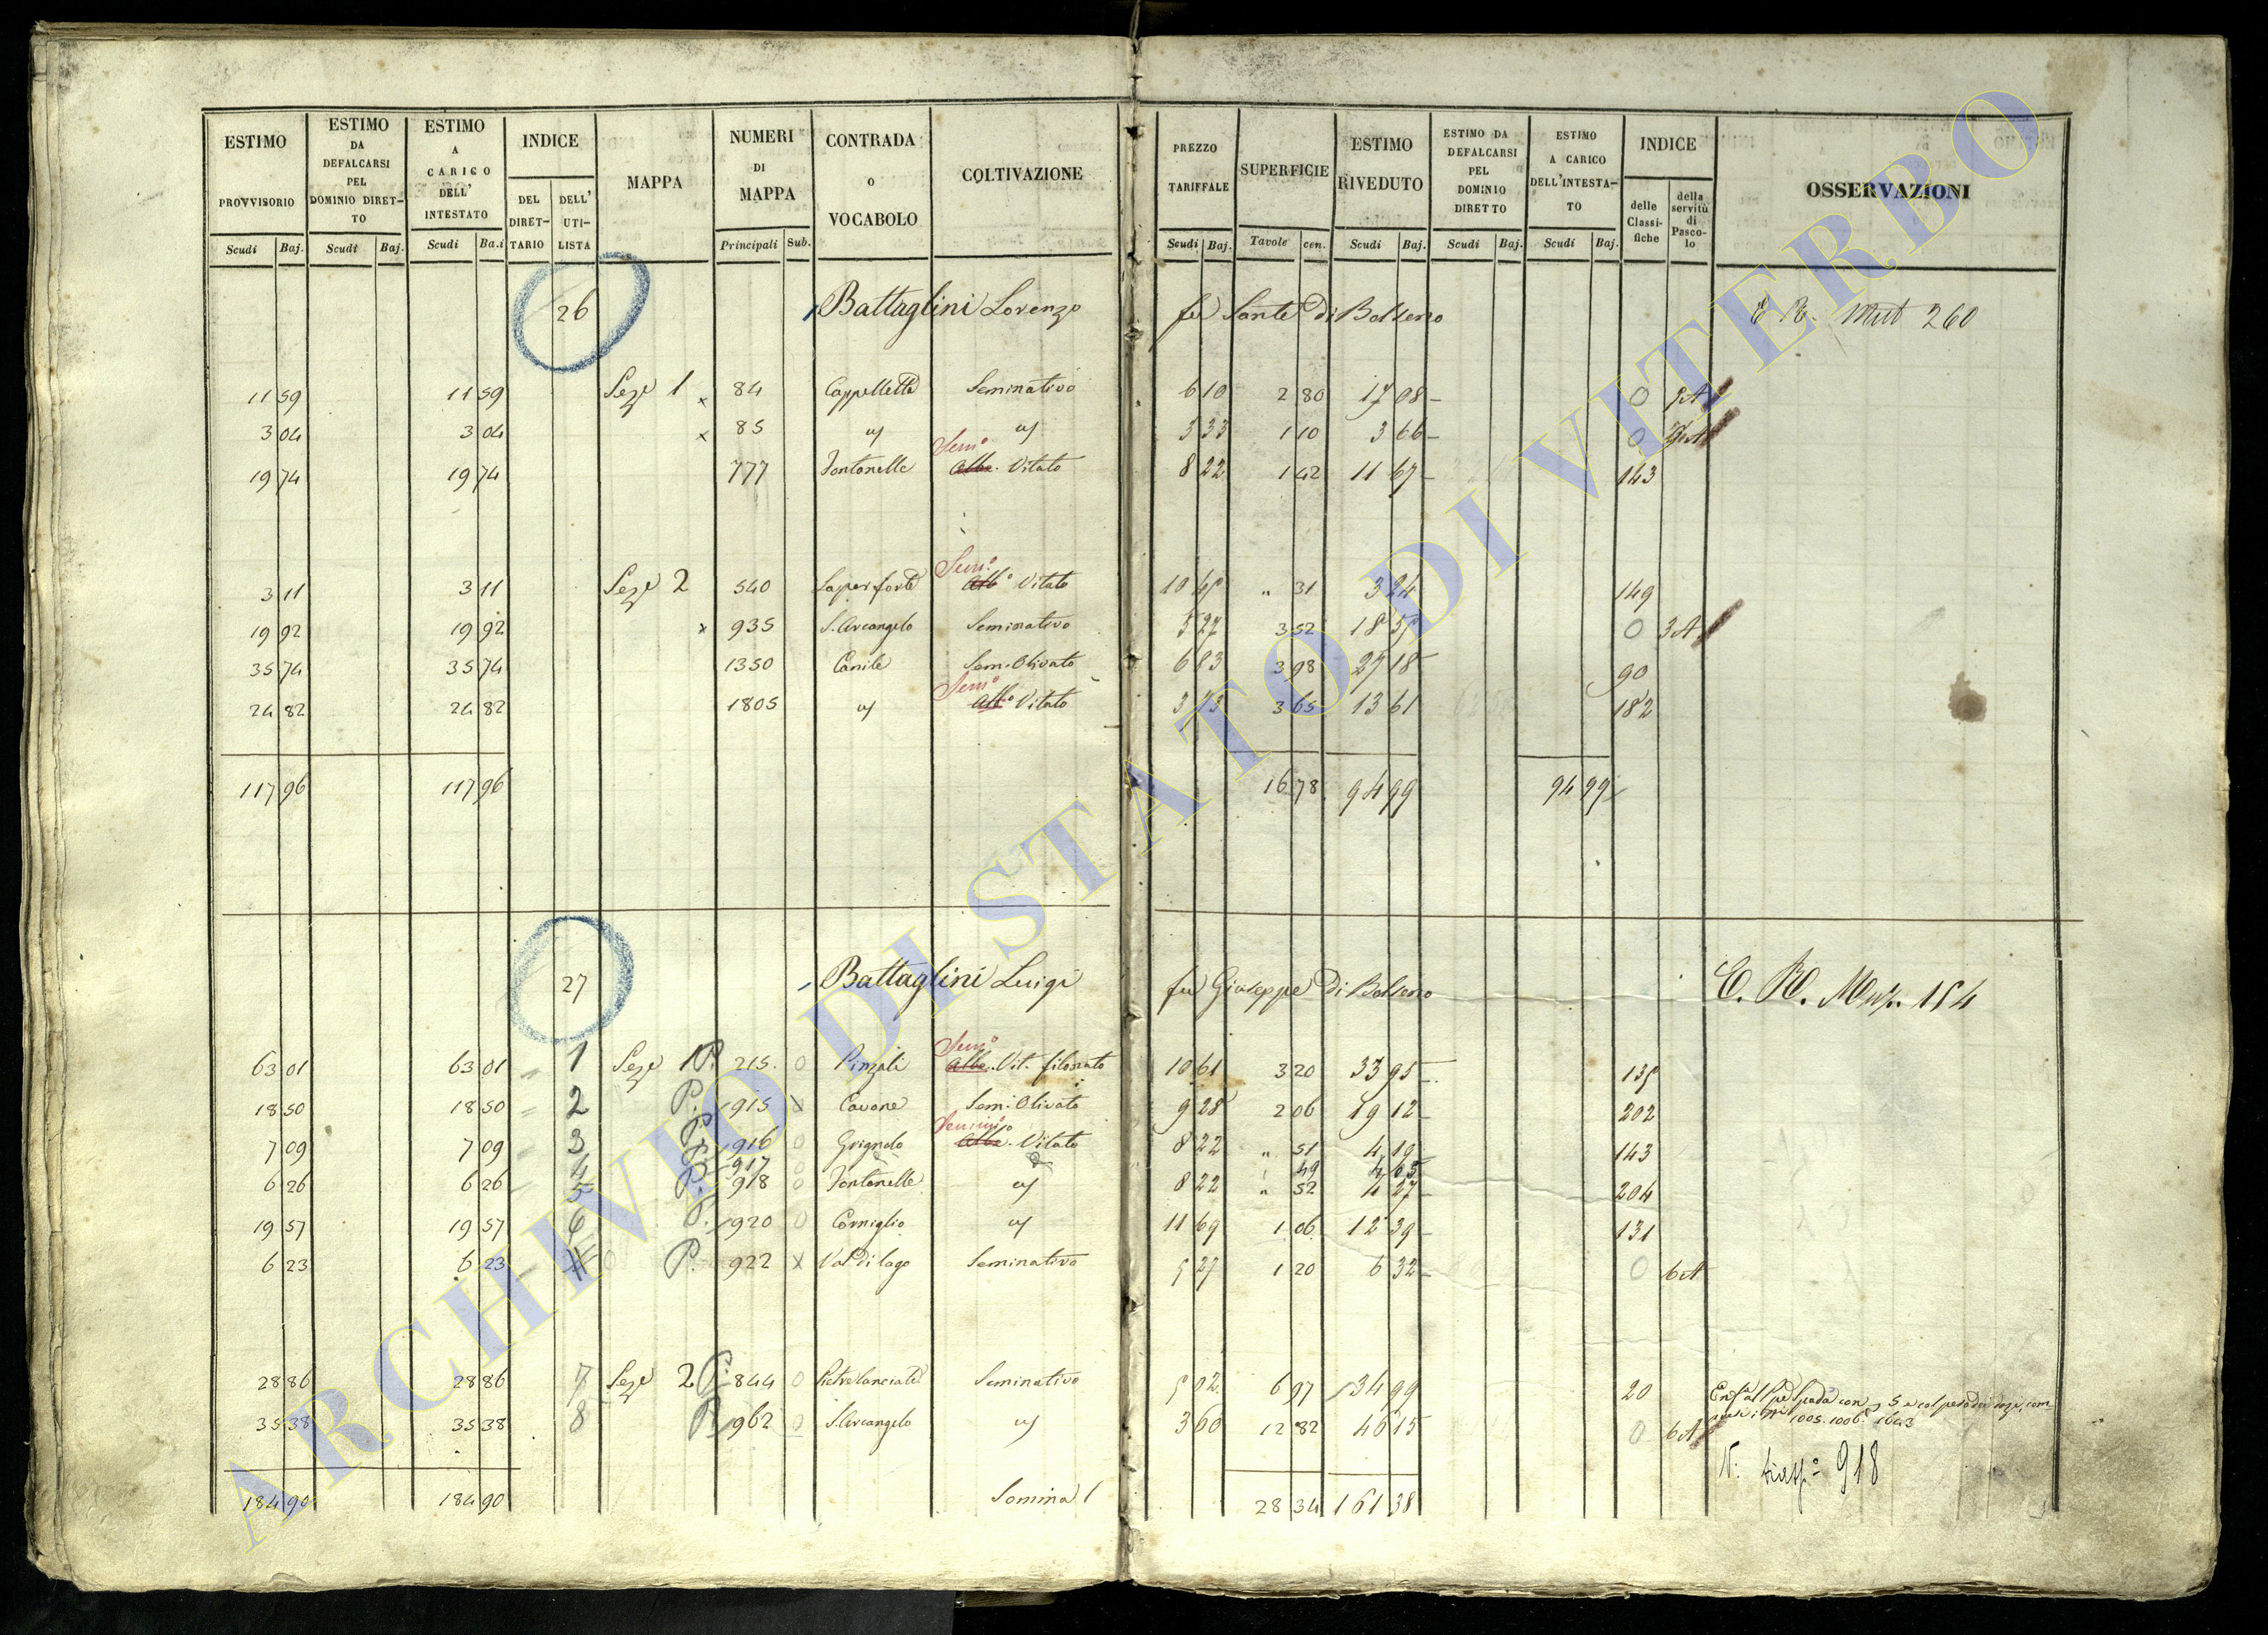 ESTIMO PROVVISORIO Scudi Baj.
ESTIMO DA DEFALCARSI PEL DOMINIO DIRETTO Scudi Baj.
ESTIMO A CARICO DELL' INTESTATO Scudi Ba.i
INDICE DEL DIRETTARIO DELL' UTILISTA
MAPPA
NUMERI DI MAPPA Principali Sub.
CONTRADA O VOCABOLO
COLTIVAZIONE
PREZZO TARIFFALE Scudi Baj.
SUPERFICIE Tavole cen.
ESTIMO RIVEDUTO Scudi Baj.
ESTIMO DA DEFALCARSI PEL DOMINIO DIRETTO Scudi Baj.
ESTIMO A CARICO DELL'INTESTATO Scudi Baj.
INDICE delle Classifiche della servitù di Pascolo
OSSERVAZIONI
26 Battaglini Lorenzo fu Sante di Bolseno Mut 260
11 59 11 59 Seze 1 x 84 Cappelletta Seminativo 6 10 2 80 17 08 0
3 04 3 04 x 85 3 33 1 10 3 66 0
19 74 19 74 777 Fontanelle Sem.o Vitato 8 22 1 42 11 67 143
3 11 3 11 Seze 2 540 Sem.o Vitato 10 45 " 31 3 24 149
19 92 19 92 x 935 S. Arcangelo Seminativo 5 27 3 52 18 55 0 3A
35 74 35 74 1350 Canile Sem. Olivato 6 83 3 98 27 18 90
24 82 24 82 1805 Sem.o Vitato 3 73 3 65 13 61 182
117 96 117 96 16 78 94 99 94 99
27 Battaglini Luigi fu Giuseppe di Bolseno 184
63 01 63 01 1 Seze 1 P. 215 0 Pinzale Sem.o Vit. filonato 10 61 3 20 33 95 135
18 50 18 50 2 P. 915 x Cavone Sem. Olivato 9 28 2 06 19 12 202
7 09 7 09 3 P. 916 0 Grignolo Vitato 8 22 " 51 4 19 143
4 P. 917 0 49 4 03
6 26 6 26 5 P. 918 0 Fontanelle 8 22 " 52 4 27 204
19 57 19 57 6 P. 920 0 Corniglio 11 69 1 06 12 39 131
6 23 6 23 P. 922 x Val di lago Seminativo 5 27 1 20 6 32 0 6A
28 86 28 86 7 Seze 2 P. 844 0 Pietrelanciate Seminativo 5 02 6 97 34 99 20
35 38 35 38 8 P. 962 0 S. Arcangelo 3 60 12 82 46 15 0 6A 1005. 1006. 1643
N. 918
184 90 184 90 Somma 28 34 161 38
ARCHIVIO DI STATO DI VITERBO